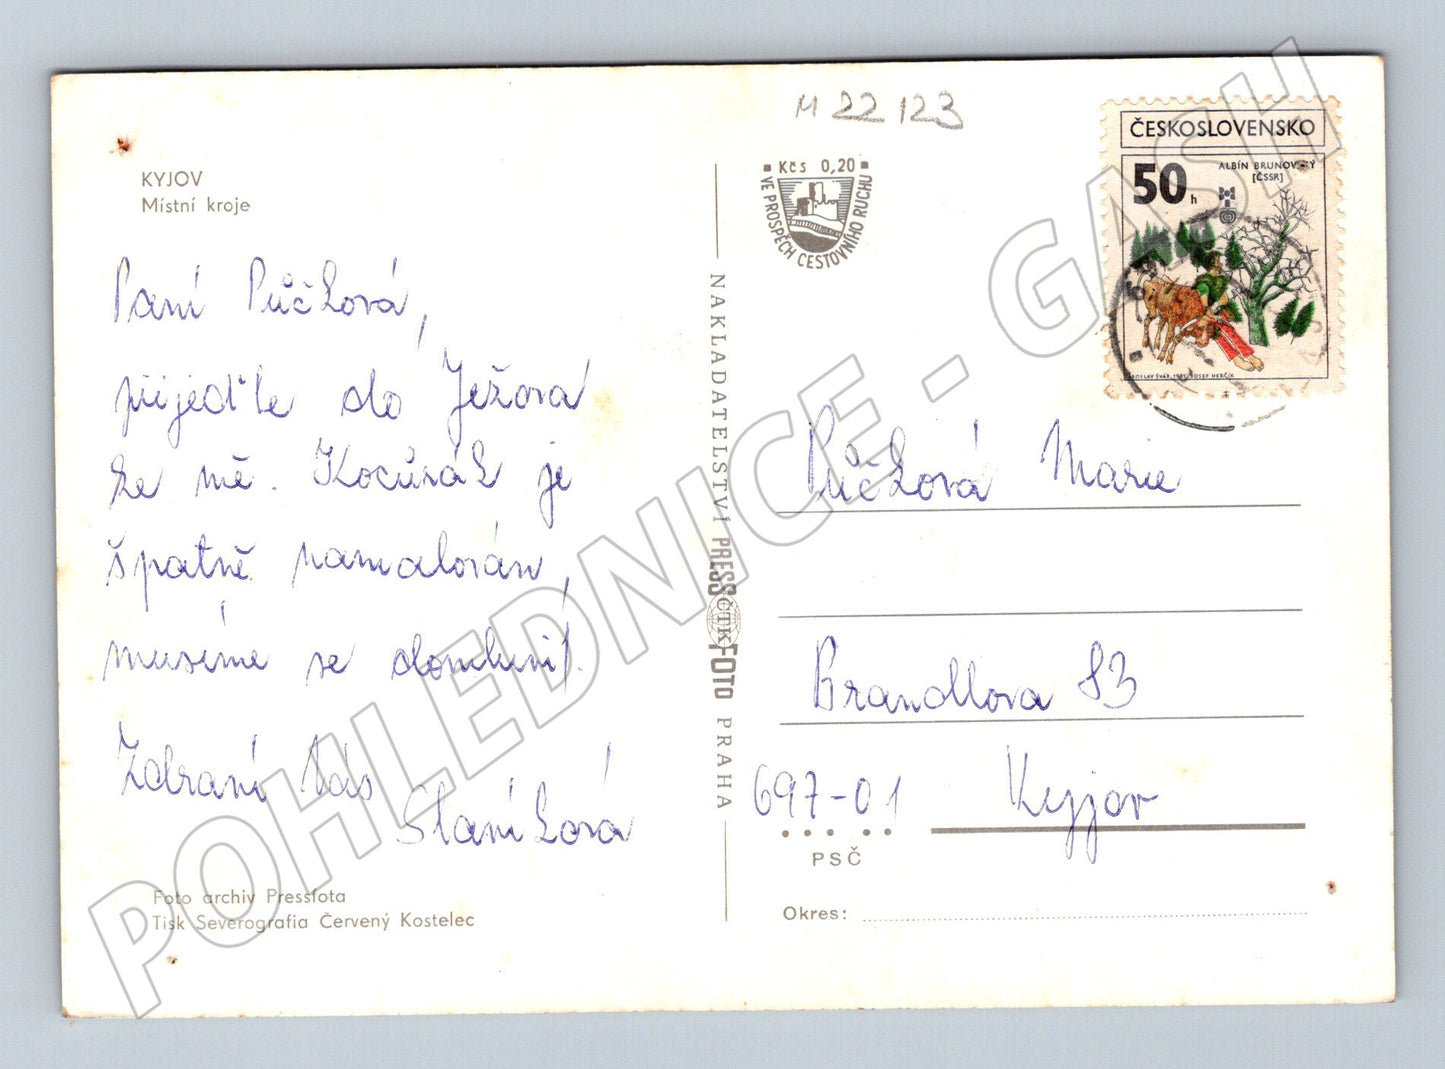 M 22 123
KYJOV
Místní kroje
Paní Půčková,
přijeďte do Ježova
ke mě. Kocůrák je
špatně namalován,
musíme se domluvit.
Zdraví Vás
Staníková
Foto archiv Pressfota
Tisk Severografia Červený Kostelec
NAKLADATELSTVÍ PRESSFOTO PRAHA
ČTK
Kčs 0,20
VE PROSPĚCH CESTOVNÍHO RUCHU
ČESKOSLOVENSKO
50 h
ALBÍN BRUNOVSKÝ
[ČSSR]
JAROSLAV ŠVÁB, 1981, JOSEF HERČÍK
Půčková Marie
Brandlova 83
697-01 Kyjov
PSČ
Okres:
POHLEDNICE - GASH